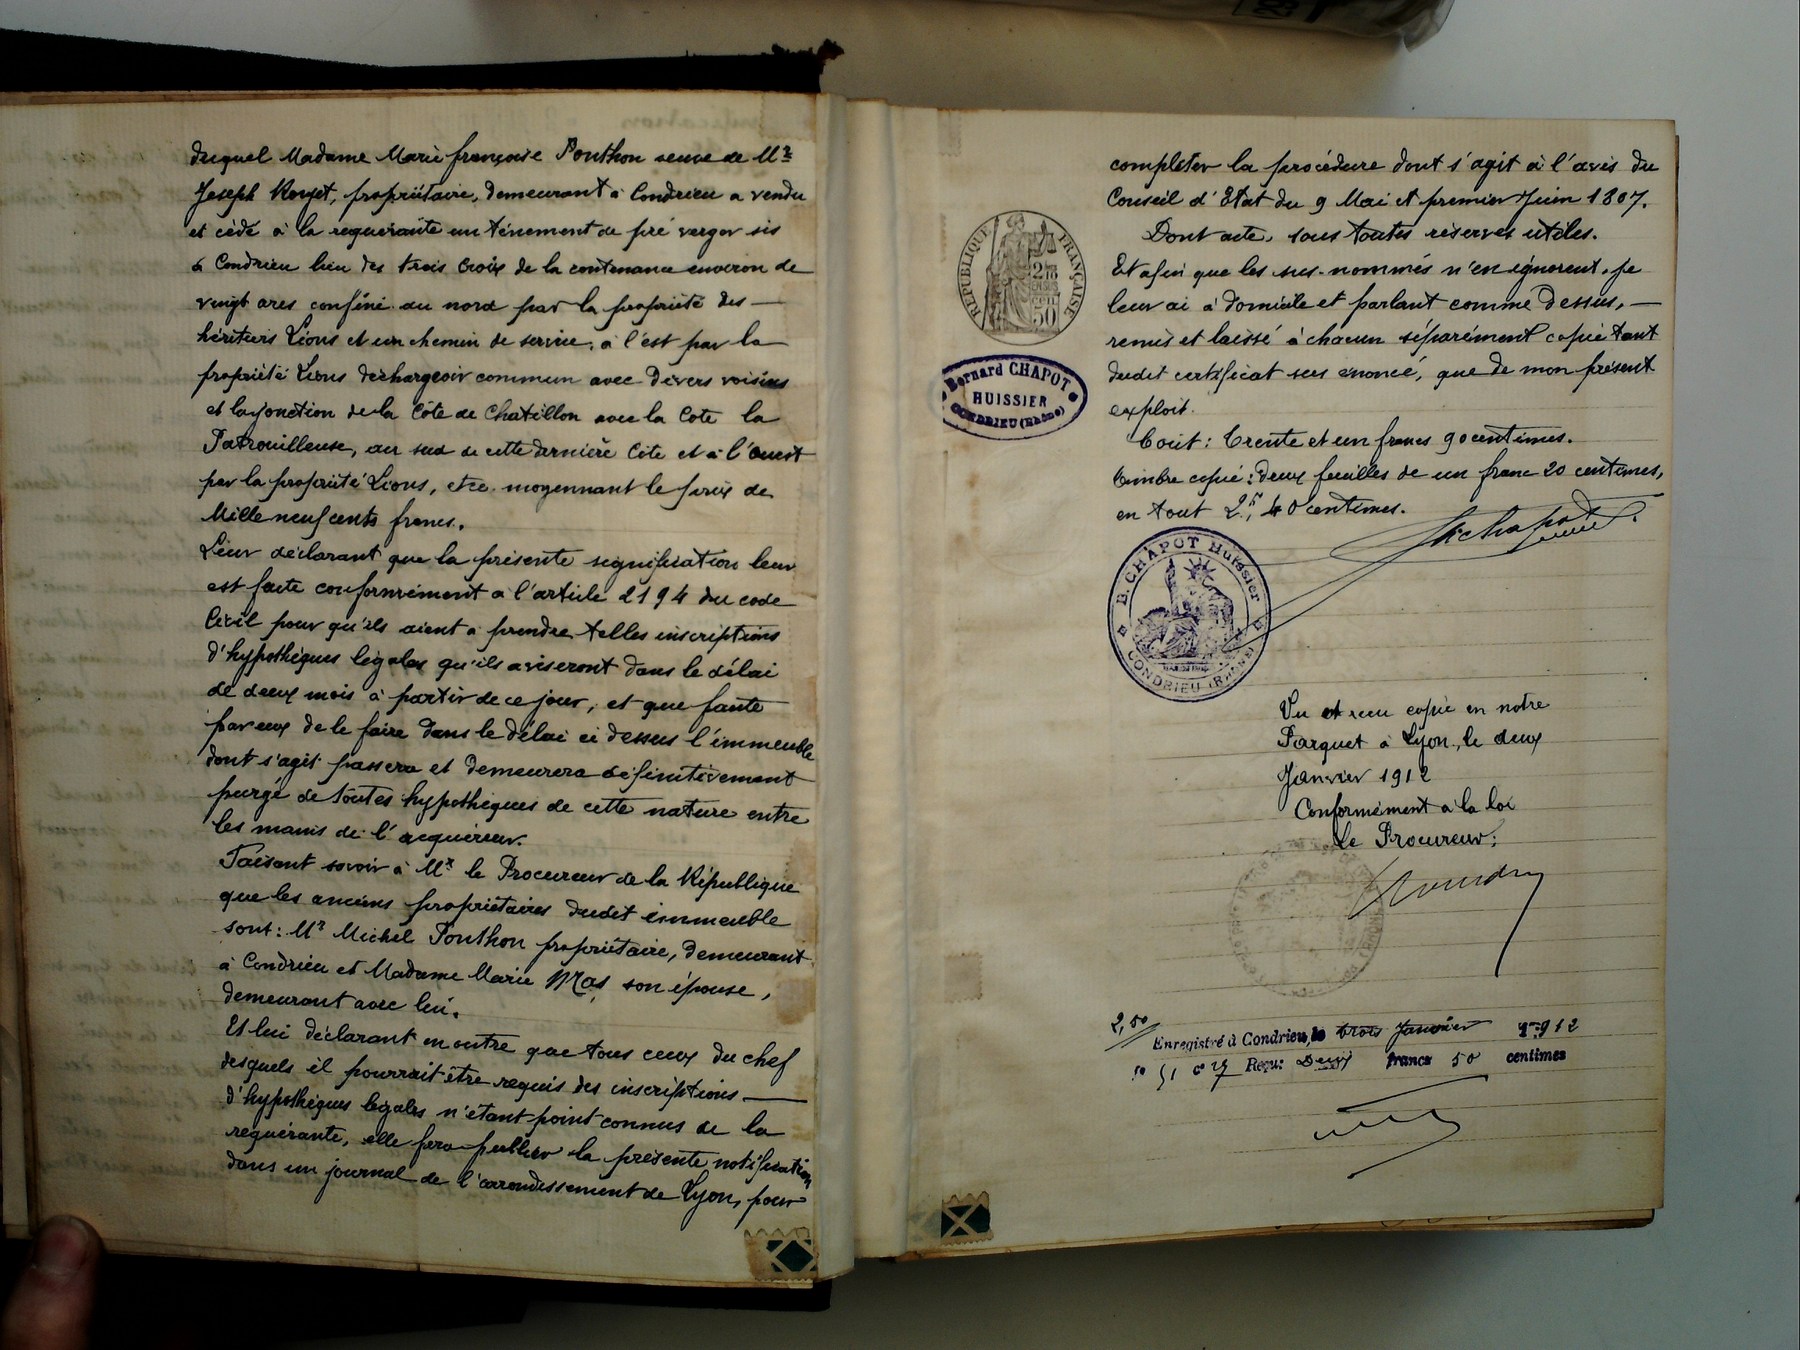 duquel Madame Marie françoise Ponthon veuve de Mr
Joseph Royet, propriétaire, demeurant à Condrieu a vendu
et cédé à la requérante un ténement de pré verger sis
à Condrieu lieu des trois Croix de la contenance environ de
vingt ares confiné au nord par la propriété des —
héritiers Lions et un chemin de service, à l'est par la
propriété Lions déchargeoir commun avec divers voisins
et la jonction de la Côte de Chatillon avec la Cote la
Patrouilleuse, au sud de cette dernière Côte et à l'ouest
par la propriété Lions, etc. moyennant le prix de
Mille neuf cents francs.
Leur déclarant que la présente signification leur
est faite conformément à l'article 2194 du code
Civil pour qu'ils aient à prendre telles inscriptions
d'hypothèques légales qu'ils aviseront dans le délai
de deux mois à partir de ce jour, et que faute
par eux de le faire dans le délai ci dessus l'immeuble
dont s'agit passera et demeurera définitivement
purgé de toutes hypothèques de cette nature entre
les mains de l'acquéreur.
Faisant savoir à Mr le Procureur de la République
que les anciens propriétaires dudit immeuble
sont: Mr Michel Ponthon propriétaire, demeurant
à Condrieu et Madame Marie Mas son épouse,
demeurant avec lui.
Et lui déclarant en outre que tous ceux du chef
desquels il pourrait être requis des inscriptions —
d'hypothèques légales n'étant point connus de la
requérante, elle fera publier la présente notification
dans un journal de l'arrondissement de Lyon, pour
compléter la procédure dont s'agit à l'avis du
Conseil d'Etat du 9 Mai et premier Juin 1807.
Dont acte, sous toutes réserves utiles.
Et afin que les sus-nommés n'en ignorent, je
leur ai à domicile et parlant comme dessus, —
remis et laissé à chacun séparément copie tant
dudit certificat sus énoncé, que de mon présent
exploit.
Coût: Trente et un francs 90 centimes.
Timbre copie: Deux feuilles de un franc 20 centimes,
en tout 2f, 40 centimes.
RÉPUBLIQUE FRANÇAISE
50
Bernard CHAPOT
HUISSIER
CONDRIEU (Rhône)
B. CHAPOT Huissier
CONDRIEU (Rhône)
Vu et reçu copie en notre
Parquet à Lyon, le deux
Janvier 1912
Conformément à la loi
Le Procureur:
2,50
Enregistré à Condrieu, le trois Janvier 1912
fo 51 co 27 Reçu: Deux francs 50 centimes